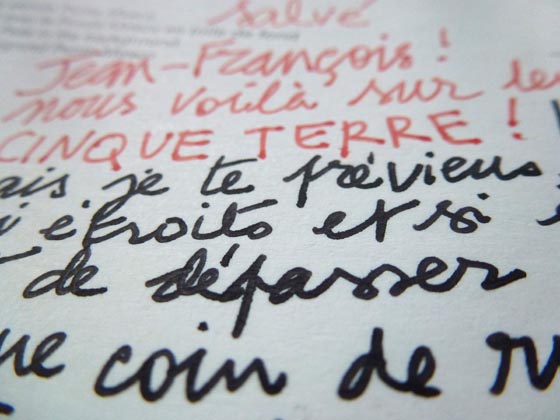 salvé
Jean-François !
nous voilà sur le
CINQUE TERRE !
ais je te préviens,
étroits et si
de dépasser
coin de